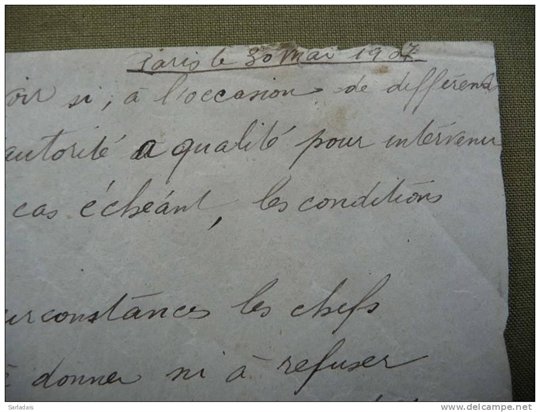 Paris le 30 Mai 1907
oir si, à l'occasion de différend
autorité a qualité pour intervenir
cas échéant, les conditions
irconstances les chefs
à donner ni à refuser
Sarladais
delcampe.net